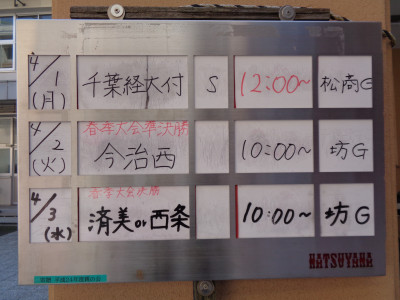 4/1 (月) 千葉経大付 S 12:00~ 松商G
春季大会準決勝
4/2 (火) 今治西 10:00~ 坊G
春季大会決勝
4/3 (水) 済美or西条 10:00~ 坊G
HATSUYAMA